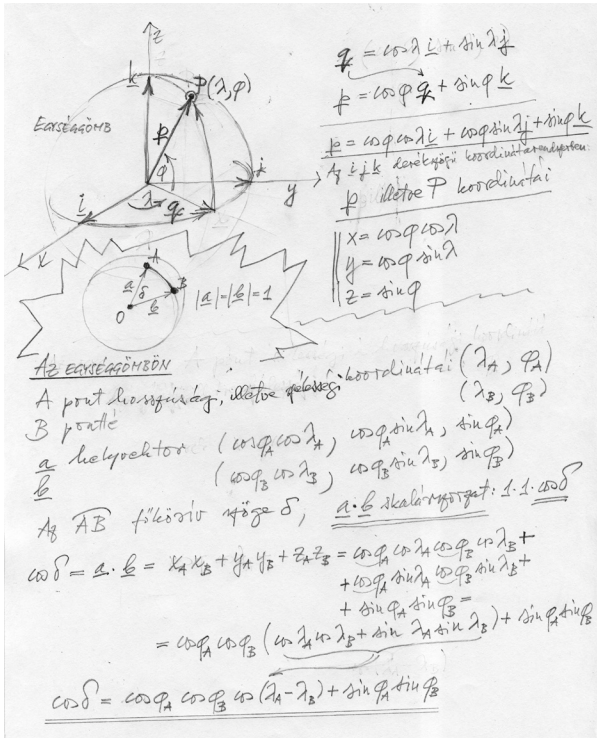 z
k
P(λ,φ)
EGYSÉGGÖMB
p
φ
j
y
λ
q
i
x
q = cosλ i + sinλ j
p = cosφ q + sinφ k
p = cosφ cosλ i + cosφ sinλ j + sinφ k
Az i j k derékszögű koordinátarendszerben:
p illetve P koordinátái
x = cosφ cosλ
y = cosφ sinλ
z = sinφ
A
a
δ
B
b
O
|a|=|b|=1
AZ EGYSÉGGÖMBÖN
A pont hosszúsági, illetve szélességi koordinátái (λ_A, φ_A)
B ponté (λ_B, φ_B)
a helyvektor (cosφ_A cosλ_A, cosφ_A sinλ_A, sinφ_A)
b (cosφ_B cosλ_B, cosφ_B sinλ_B, sinφ_B)
Az AB főkörív szöge δ, a·b skalárszorzat: 1·1·cosδ
cosδ = a·b = x_A x_B + y_A y_B + z_A z_B = cosφ_A cosλ_A cosφ_B cosλ_B +
+ cosφ_A sinλ_A cosφ_B sinλ_B +
+ sinφ_A sinφ_B =
= cosφ_A cosφ_B (cosλ_A cosλ_B + sin λ_A sin λ_B) + sinφ_A sinφ_B
cosδ = cosφ_A cosφ_B cos(λ_A-λ_B) + sinφ_A sinφ_B